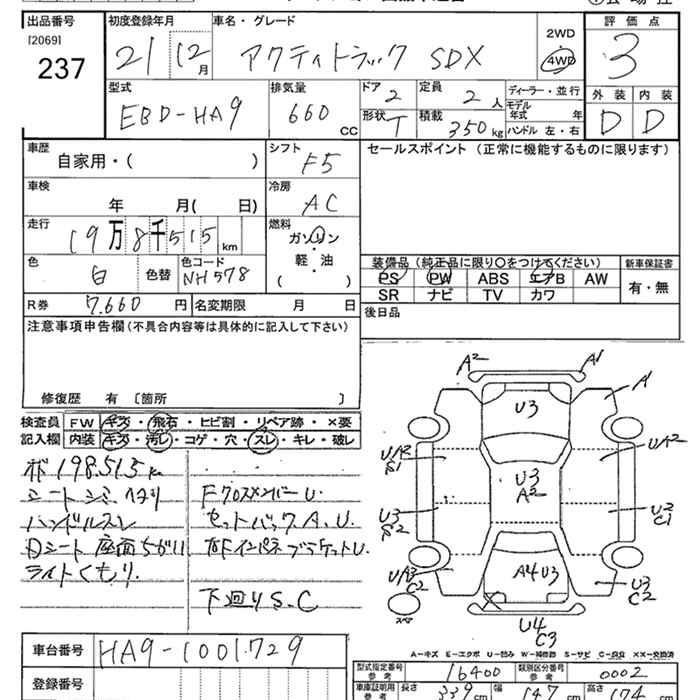 出品番号 初度登録年月 車名・グレード 2WD 評価点
[2069] 21 12月 アクティトラック SDX 4WD 3
237
型式 排気量 ドア 定員 ディーラー・並行 外装 内装
EBD-HA9 660 CC 2 2人 モデル年式 年 D D
形状 T 積載 350kg ハンドル 左・右
車歴 シフト セールスポイント (正常に機能するものに限ります)
自家用・( ) F5
車検 冷房
年 月( 日) AC
走行 燃料
19万8千515km ガソリン・軽・油
色 色コード ( )
白 色替 NH578
装備品 (純正品に限り○をつけてください) 新車保証書
PS PW ABS エアB AW 有・無
SR ナビ TV カワ
R券 7,660円 名変期限 月 日 後日品
注意事項申告欄 (不具合内容等は具体的に記入して下さい)
修復歴 有 [箇所 ]
検査員 FW キズ・飛石・ヒビ割・リペア跡・×要
記入欄 内装 キズ・汚レ・コゲ・穴・スレ・キレ・破レ
198,515km
シートシミ ヘタリ Fクロスメンバー U.
ハンドルスレ セットバック A, U.
Dシート 座面ちがい 右Fインパネブラケット U.
ライトくもり.
下回り S.C
A2 A1
U3 A1
UA2 S1 U3 A2 UA2
U3 S2 U3 C1
UA3 C2 A4 U3 U3 C2
スペア U4 C3
A−キズ E−エクボ U−凹み W−補修跡 S−サビ C−腐食 XX−交換済
車台番号 HA9-1001729
登録番号
型式指定番号 参考 16400 類別区分番号 参考 0002
車庫証明用 参考 長さ 339cm 幅 147cm 高さ 174cm